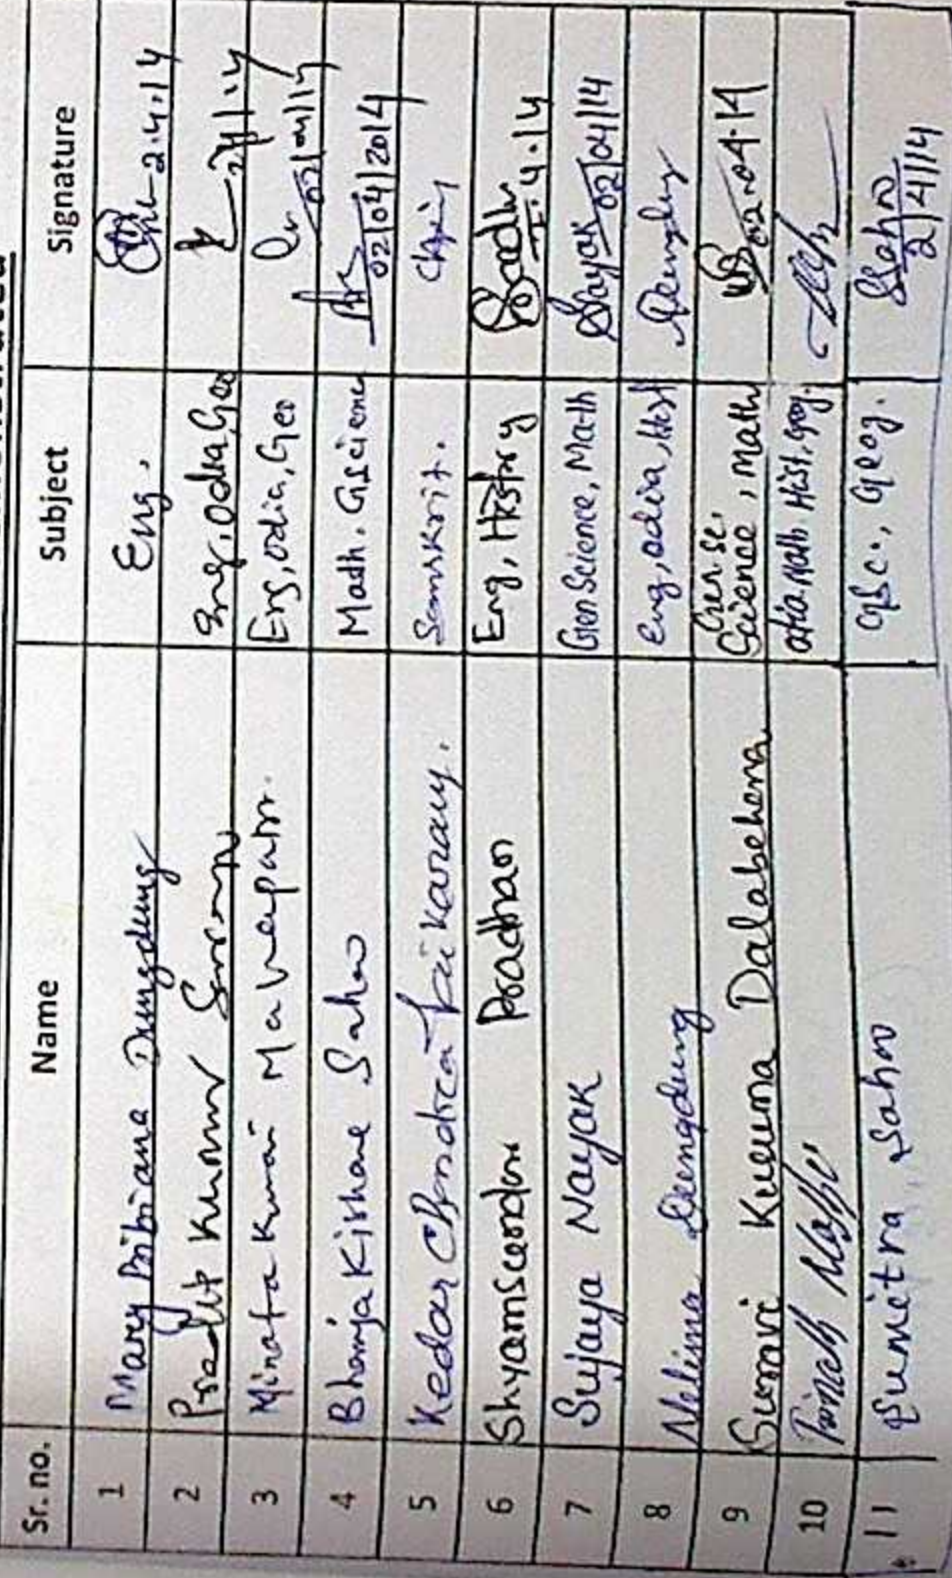 Sr. no. Name Subject Signature
1 Mary Bibiana Dungdung Eng. 2.4.14
2 Kumar Eng, Odia, Geo 2/4/14
3 Minata Kumari Mahapatra. Eng, Odia, Geo 02/04/14
4 Bhamja Kishore Sahoo Math. G.Science 02/04/2014
5 Kedar Chandra Sanskrit.
6 Shyamsundar Pradhan Eng, History 4.14
7 Sujaya Nayak Gen Science, Math Nayak 02/04/14
8 Nelima Dungdung Eng, odia, Hist
9 Kumar Dalabehera Gen sc.
Science, Math 02.04.14
10 Math. Hist, geog.
11 Sumitra Sahoo G.Sc., Geog. SSahoo
2/4/14